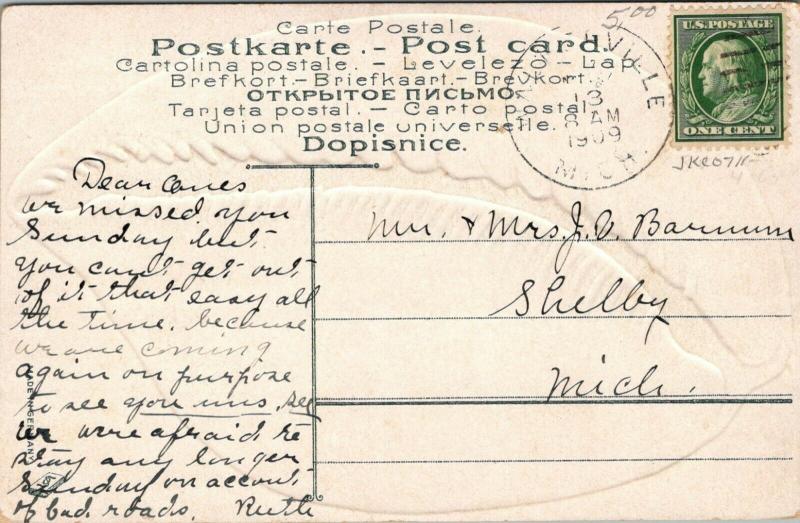 5.00
Carte Postale.
Postkarte. - Post card.
Cartolina postale. - Levelező - Lap.
Brefkort.- Briefkaart.- Brevkort.
ОТКРЫТОЕ ПИСЬМО.
Tarjeta postal. - Carto postal.
Union postale universelle.
Dopisnice.
VILLE
13
8 AM
1909
MICH.
U.S. POSTAGE
ONE CENT
Dear Ones
we missed you
Sunday but
you can't get out
of it that easy all
the time. because
we are coming
again on purpose
to see you uns. see
we were afraid to
stay any longer
Sunday on account
of bad roads. Ruth
Mr. & Mrs. J. V. Barnum
Shelby
Mich.
MADE IN GERMANY